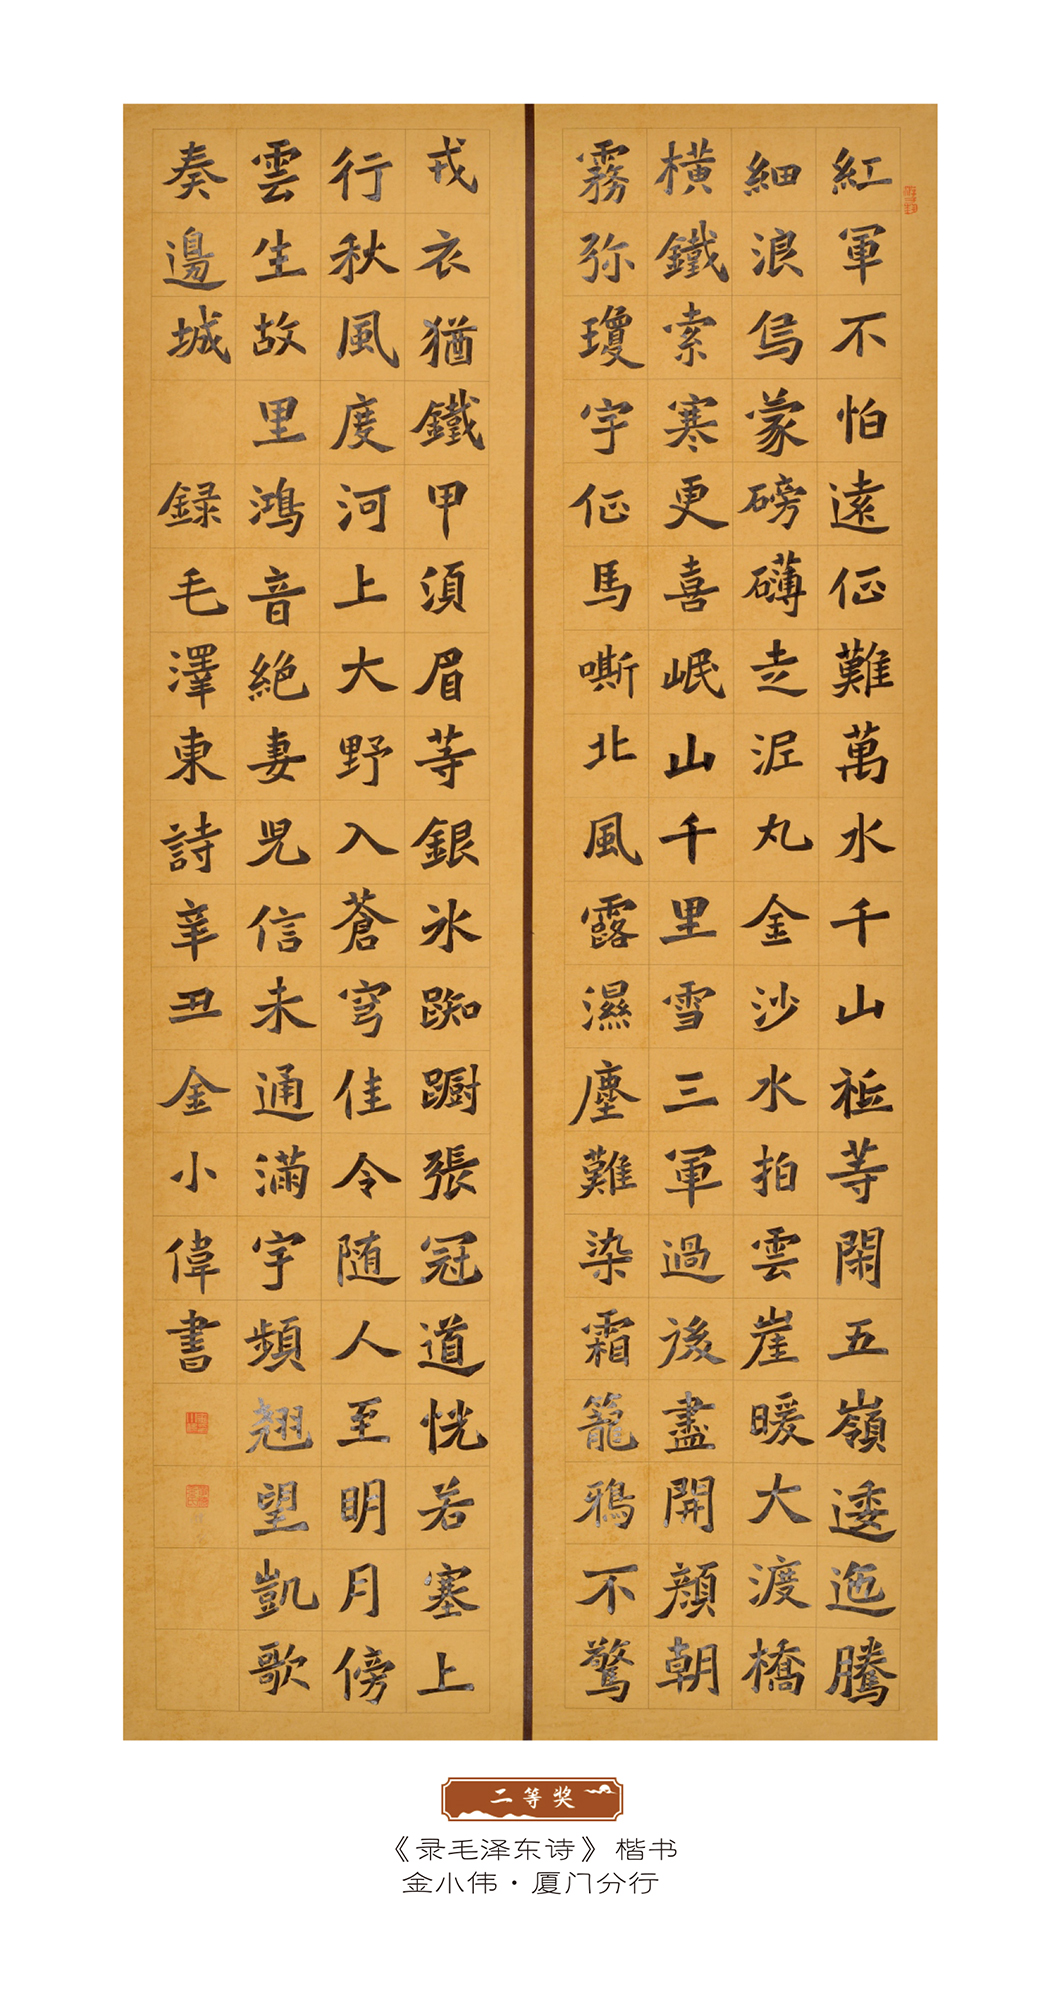 紅軍不怕遠征難萬水千山祗等閑五嶺逶迤騰
細浪烏蒙磅礴走泥丸金沙水拍雲崖暖大渡橋
橫鐵索寒更喜岷山千里雪三軍過後盡開顏朝
霧弥瓊宇征馬嘶北風露濕塵難染霜籠鴉不驚
戎衣猶鐵甲須眉等銀冰踟躕張冠道恍若塞上
行秋風度河上大野入蒼穹佳令随人至明月傍
雲生故里鴻音絶妻児信未通滿宇頻翹望凱歌
奏邊城 録毛澤東詩辛丑金小偉書
二等奖
《录毛泽东诗》楷书
金小伟·厦门分行